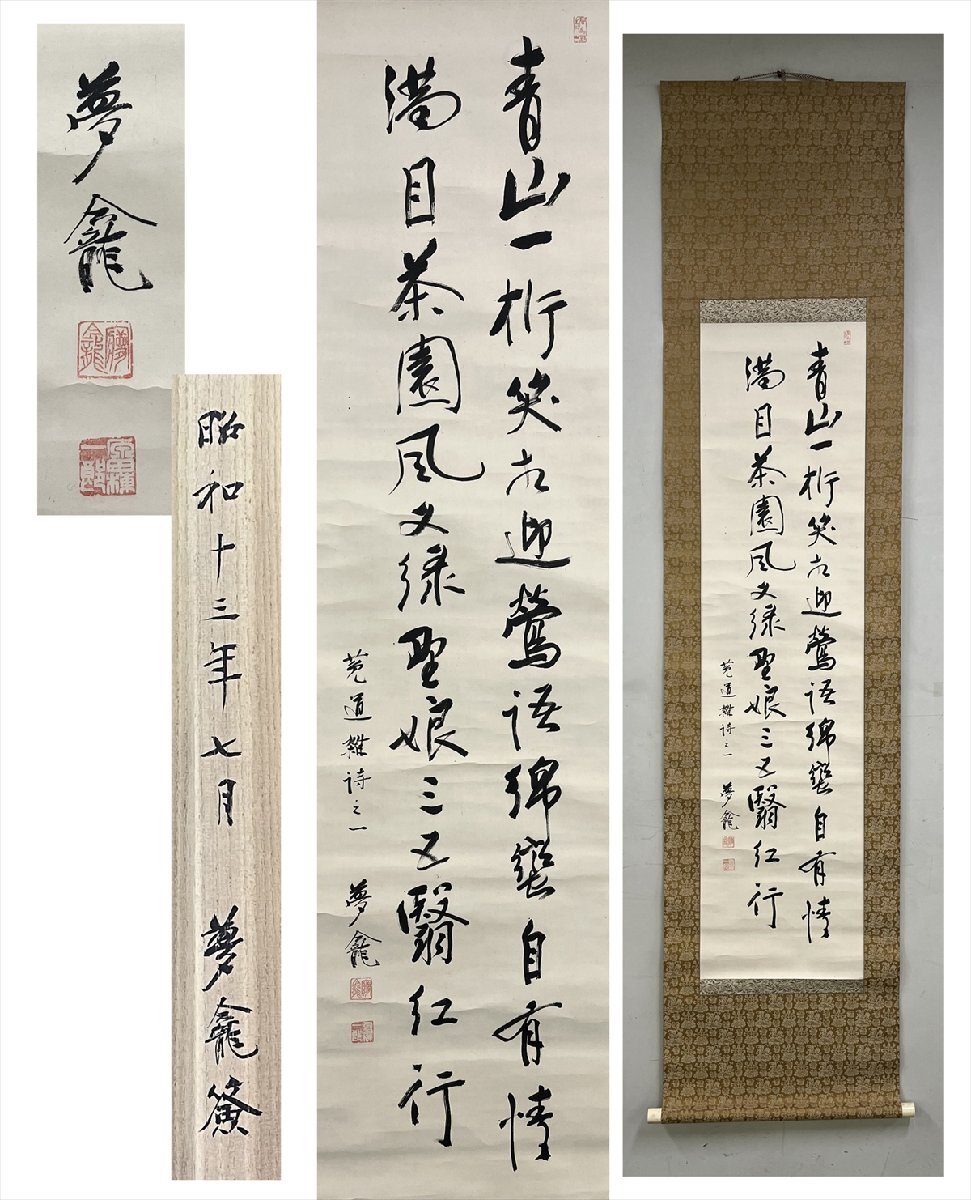 夢龕
夢龕
昭和十三年七月 夢龕簽
青山一桁笑相迎鶯語綿蠻自有情
満目茶園風又緑娘三五翳紅行
菟道雜詩之一 夢龕
青山一桁笑相迎鶯語綿蠻自有情
満目茶園風又緑娘三五翳紅行
菟道雜詩之一 夢龕